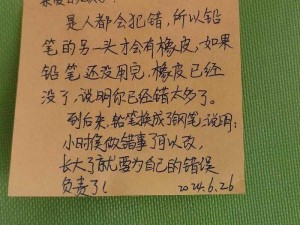 是人都会犯错，所以铅
笔的另一头才会有橡皮，如果
铅笔还没用完，橡皮已经
没了，说明你已经错太多了。
到后来，铅笔换成了钢笔，说明：
小时候做错事了可以改，
长大了就要为自己的错误
负责了！
2024.6.26